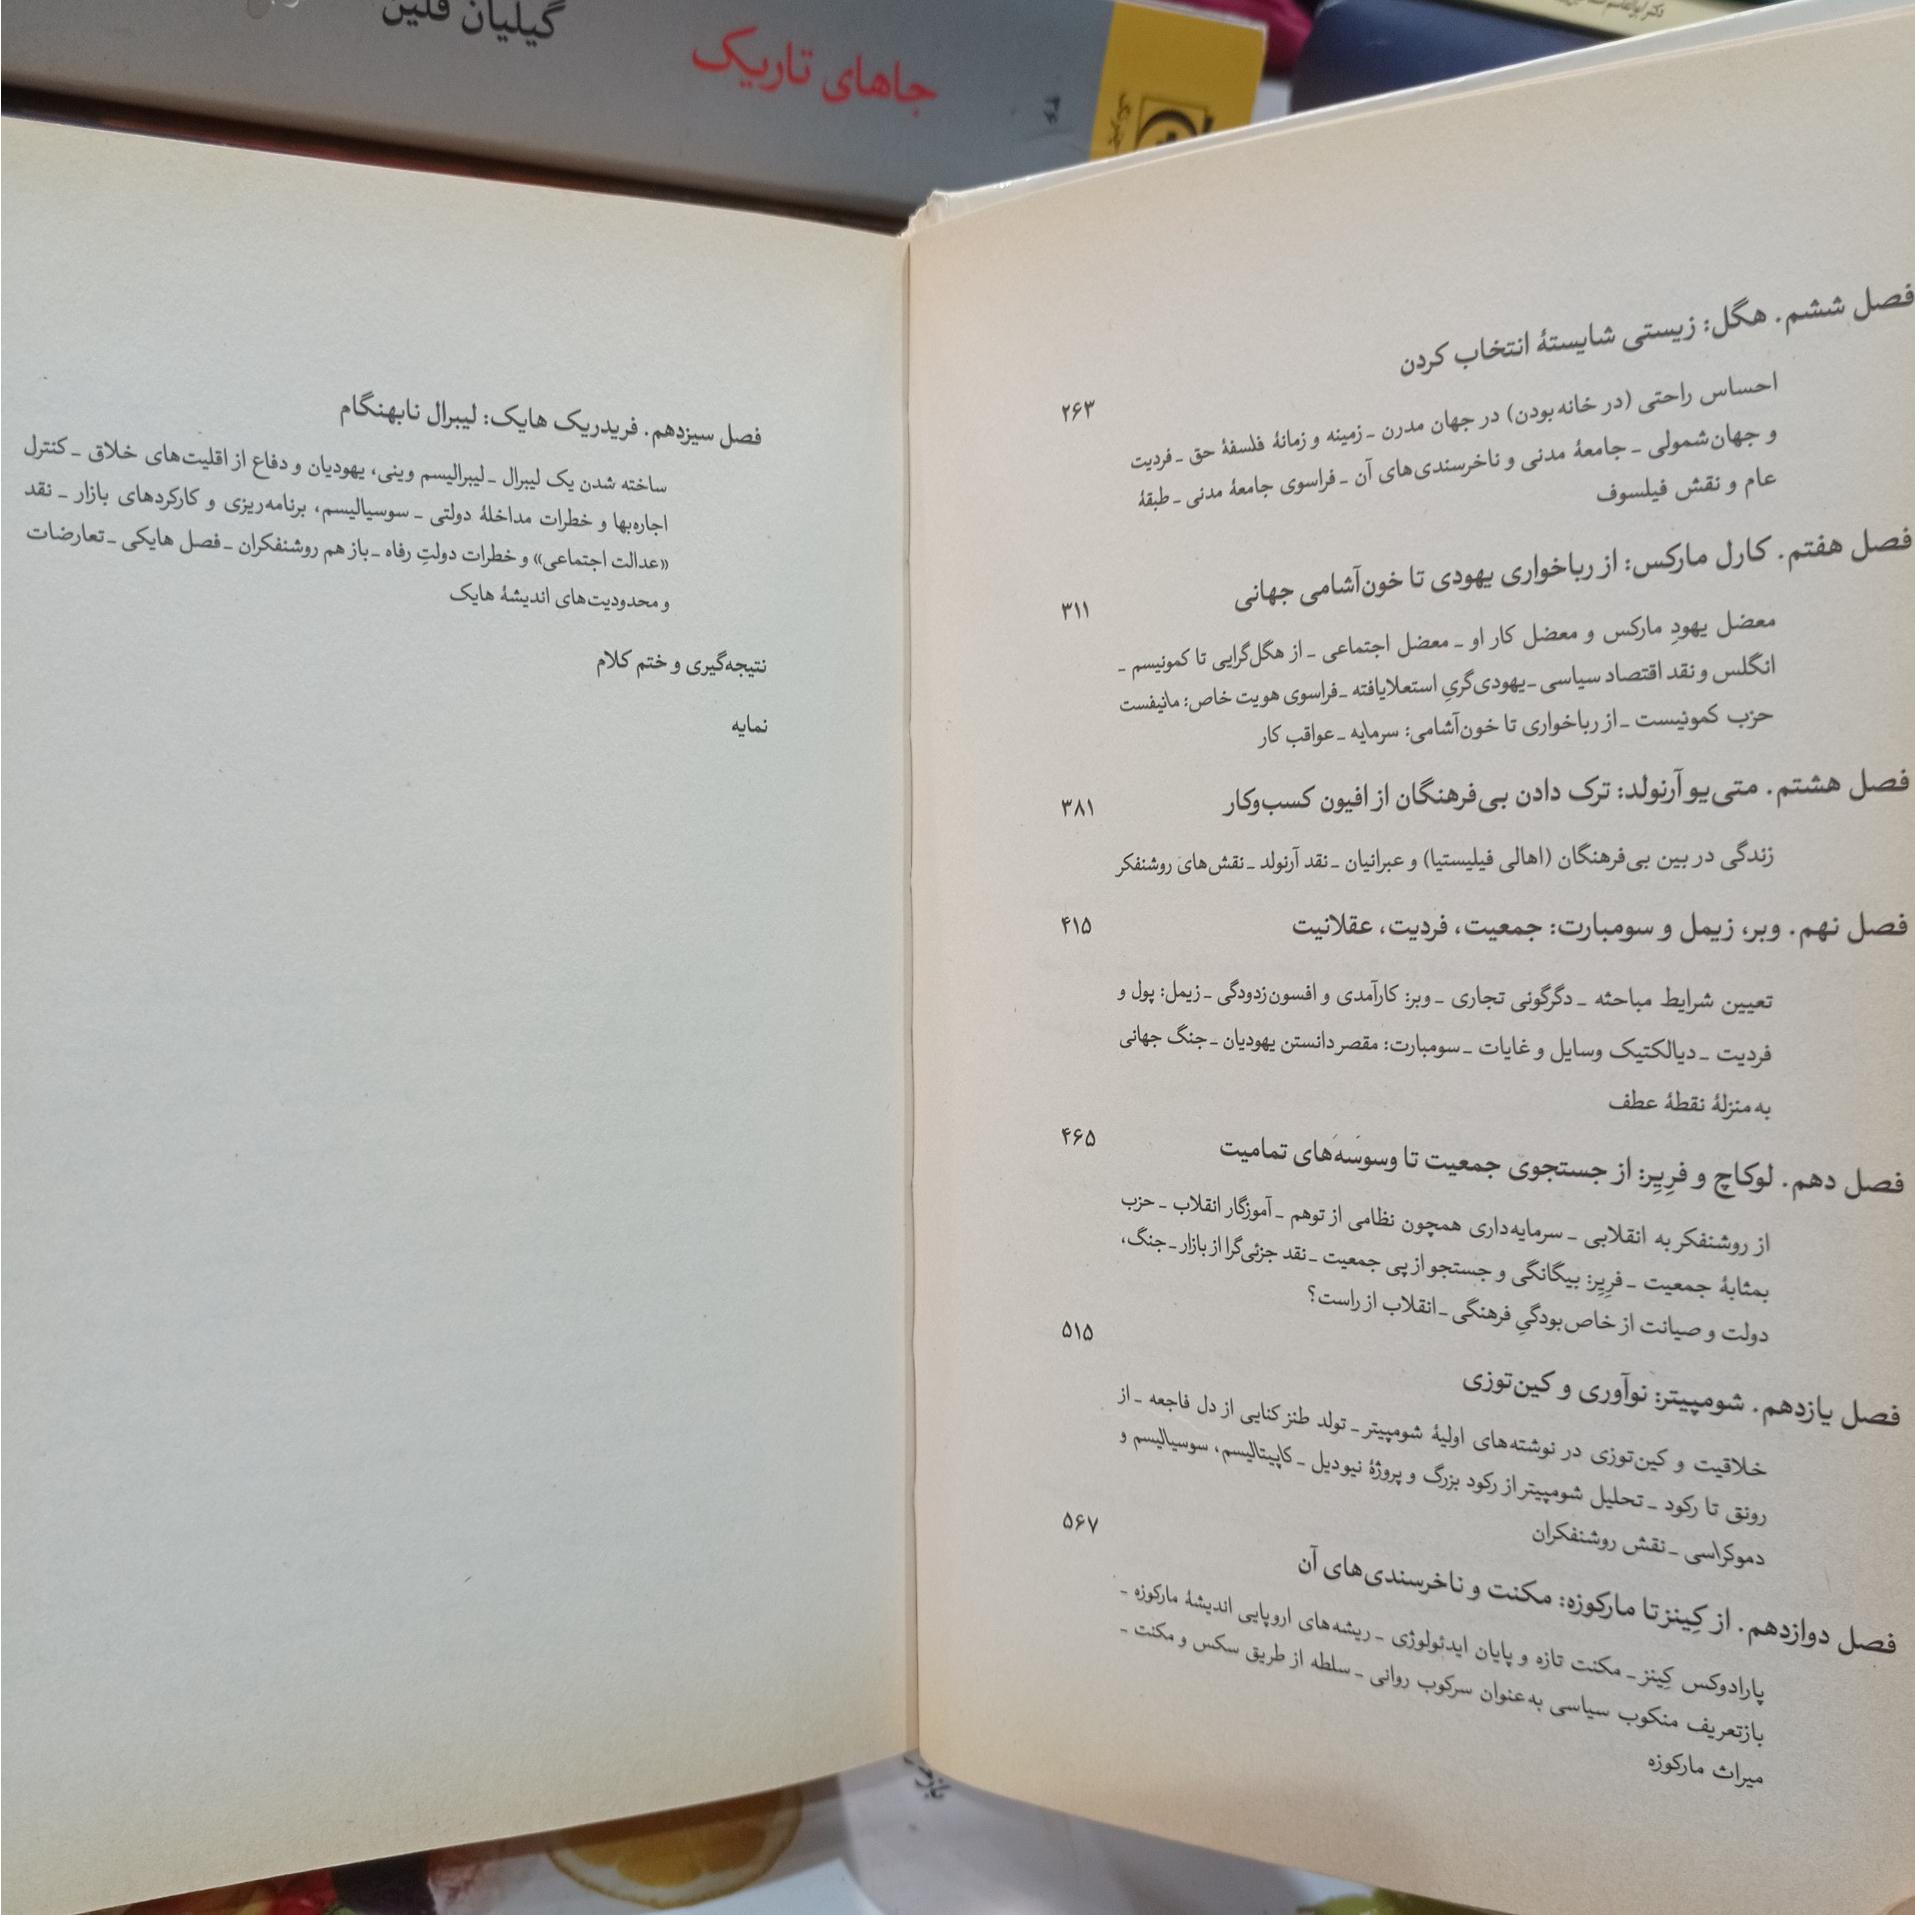 گیلیان فلین
جاهای تاریک
فصل ششم. هگل: زیستی شایستهٔ انتخاب کردن
۲۶۳
احساس راحتی (در خانه‌بودن) در جهان مدرن ـ زمینه و زمانهٔ فلسفهٔ حق ـ فردیت
و جهان‌شمولی ـ جامعهٔ مدنی و ناخرسندی‌های آن ـ فراسوی جامعهٔ مدنی ـ طبقهٔ
عام و نقش فیلسوف
فصل هفتم. کارل مارکس: از رباخواری یهودی تا خون‌آشامی جهانی
۳۱۱
معضل یهودِ مارکس و معضل کار او ـ معضل اجتماعی ـ از هگل‌گرایی تا کمونیسم ـ
انگلس و نقد اقتصاد سیاسی ـ یهودی‌گریِ استعلایافته ـ فراسوی هویت خاص: مانیفست
حزب کمونیست ـ از رباخواری تا خون‌آشامی: سرمایه ـ عواقب کار
فصل هشتم. متی‌یو آرنولد: ترک دادن بی‌فرهنگان از افیون کسب‌وکار
۳۸۱
زندگی در بین بی‌فرهنگان (اهالی فیلیستیا) و عبرانیان ـ نقد آرنولد ـ نقش‌های روشنفکر
فصل نهم. وبر، زیمل و سومبارت: جمعیت، فردیت، عقلانیت
۴۱۵
تعیین شرایط مباحثه ـ دگرگونی تجاری ـ وبر: کارآمدی و افسون‌زدودگی ـ زیمل: پول و
فردیت ـ دیالکتیک وسایل و غایات ـ سومبارت: مقصر دانستن یهودیان ـ جنگ جهانی
به منزلهٔ نقطهٔ عطف
فصل دهم. لوکاچ و فرِیِر: از جستجوی جمعیت تا وسوسه‌های تمامیت
۴۶۵
از روشنفکر به انقلابی ـ سرمایه‌داری همچون نظامی از توهم ـ آموزگار انقلاب ـ حزب
بمثابهٔ جمعیت ـ فرِیِر: بیگانگی و جستجو از پی جمعیت ـ نقد جزئی‌گرا از بازار ـ جنگ،
دولت و صیانت از خاص‌بودگیِ فرهنگی ـ انقلاب از راست؟
فصل یازدهم. شومپیتر: نوآوری و کین‌توزی
۵۱۵
خلاقیت و کین‌توزی در نوشته‌های اولیهٔ شومپیتر ـ تولد طنز کنایی از دل فاجعه ـ از
رونق تا رکود ـ تحلیل شومپیتر از رکود بزرگ و پروژهٔ نیودیل ـ کاپیتالیسم، سوسیالیسم و
دموکراسی ـ نقش روشنفکران
فصل دوازدهم. از کِینز تا مارکوزه: مکنت و ناخرسندی‌های آن
۵۶۷
پارادوکس کِینز ـ مکنت تازه و پایان ایدئولوژی ـ ریشه‌های اروپایی اندیشهٔ مارکوزه ـ
بازتعریف منکوب سیاسی به‌عنوان سرکوب روانی ـ سلطه از طریق سکس و مکنت ـ
میراث مارکوزه
فصل سیزدهم. فریدریک هایک: لیبرال نابهنگام
ساخته شدن یک لیبرال ـ لیبرالیسم وینی، یهودیان و دفاع از اقلیت‌های خلاق ـ کنترل
اجاره‌بها و خطرات مداخلهٔ دولتی ـ سوسیالیسم، برنامه‌ریزی و کارکردهای بازار ـ نقد
«عدالت اجتماعی» و خطرات دولتِ رفاه ـ باز هم روشنفکران ـ فصل هایکی ـ تعارضات
و محدودیت‌های اندیشهٔ هایک
نتیجه‌گیری و ختم کلام
نمایه